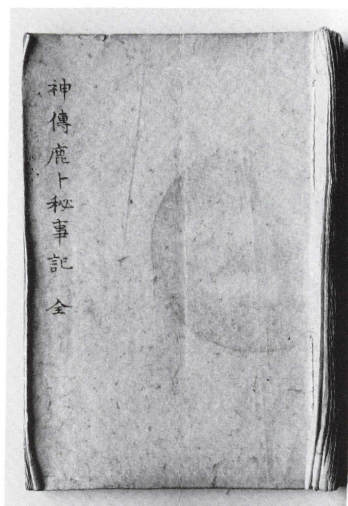 神傳鹿卜秘事記 全